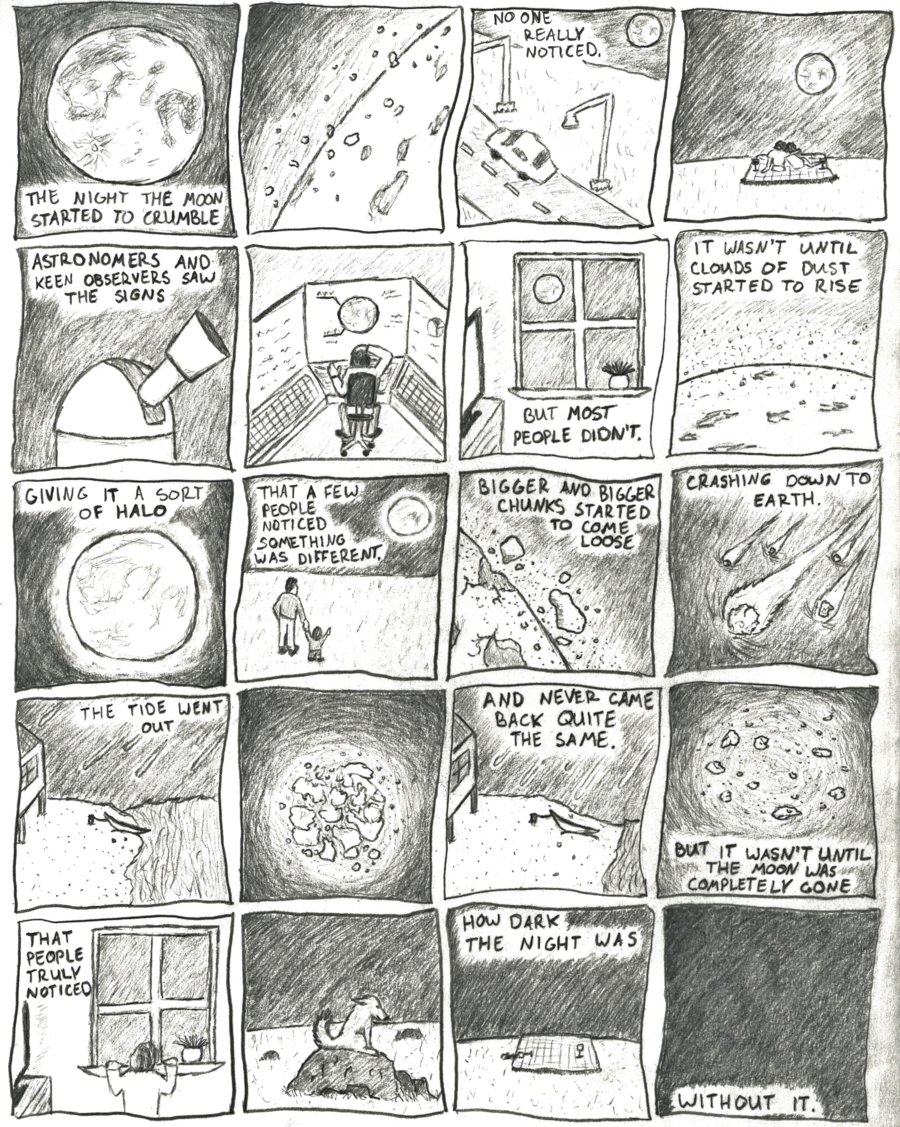 THE NIGHT THE MOON
STARTED TO CRUMBLE
NO ONE
REALLY
NOTICED.
ASTRONOMERS AND
KEEN OBSERVERS SAW
THE SIGNS
BUT MOST
PEOPLE DIDN'T.
IT WASN'T UNTIL
CLOUDS OF DUST
STARTED TO RISE
GIVING IT A SORT
OF HALO
THAT A FEW
PEOPLE
NOTICED
SOMETHING
WAS DIFFERENT.
BIGGER AND BIGGER
CHUNKS STARTED
TO COME
LOOSE
CRASHING DOWN TO
EARTH.
THE TIDE WENT
OUT
AND NEVER CAME
BACK QUITE
THE SAME.
BUT IT WASN'T UNTIL
THE MOON WAS
COMPLETELY GONE
THAT
PEOPLE
TRULY
NOTICED
HOW DARK
THE NIGHT WAS
WITHOUT IT.